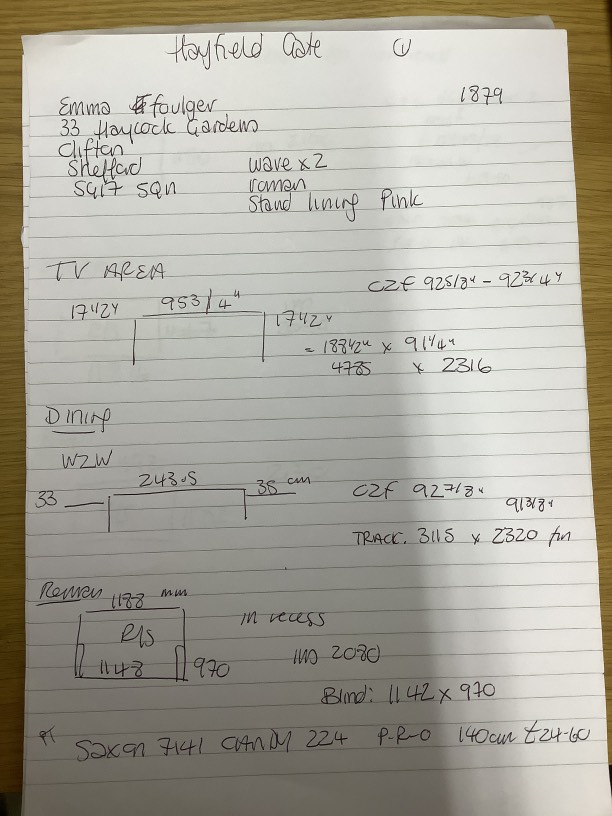 Hayfield Gate 1
Emma Foulger 1879
33 Haycock Gardens
Clifton
Shefford wave x 2
SG17 5QN roman
Stand lining Pink
TV AREA
CZF 92 5/8" - 92 3/4"
17 1/2" 95 3/4" 17 1/2"
= 188 1/2" x 91 1/4"
4785 x 2316
Dining
W2W
33 243.5 35 cm
CZF 92 7/8" 91 3/8"
TRACK. 3115 x 2320 fin
Roman
1188 mm
in recess
R/S
1148 970 2080
Blind: 1142 x 970
Saxon 7141 224 P-R-O 140cm £24-60